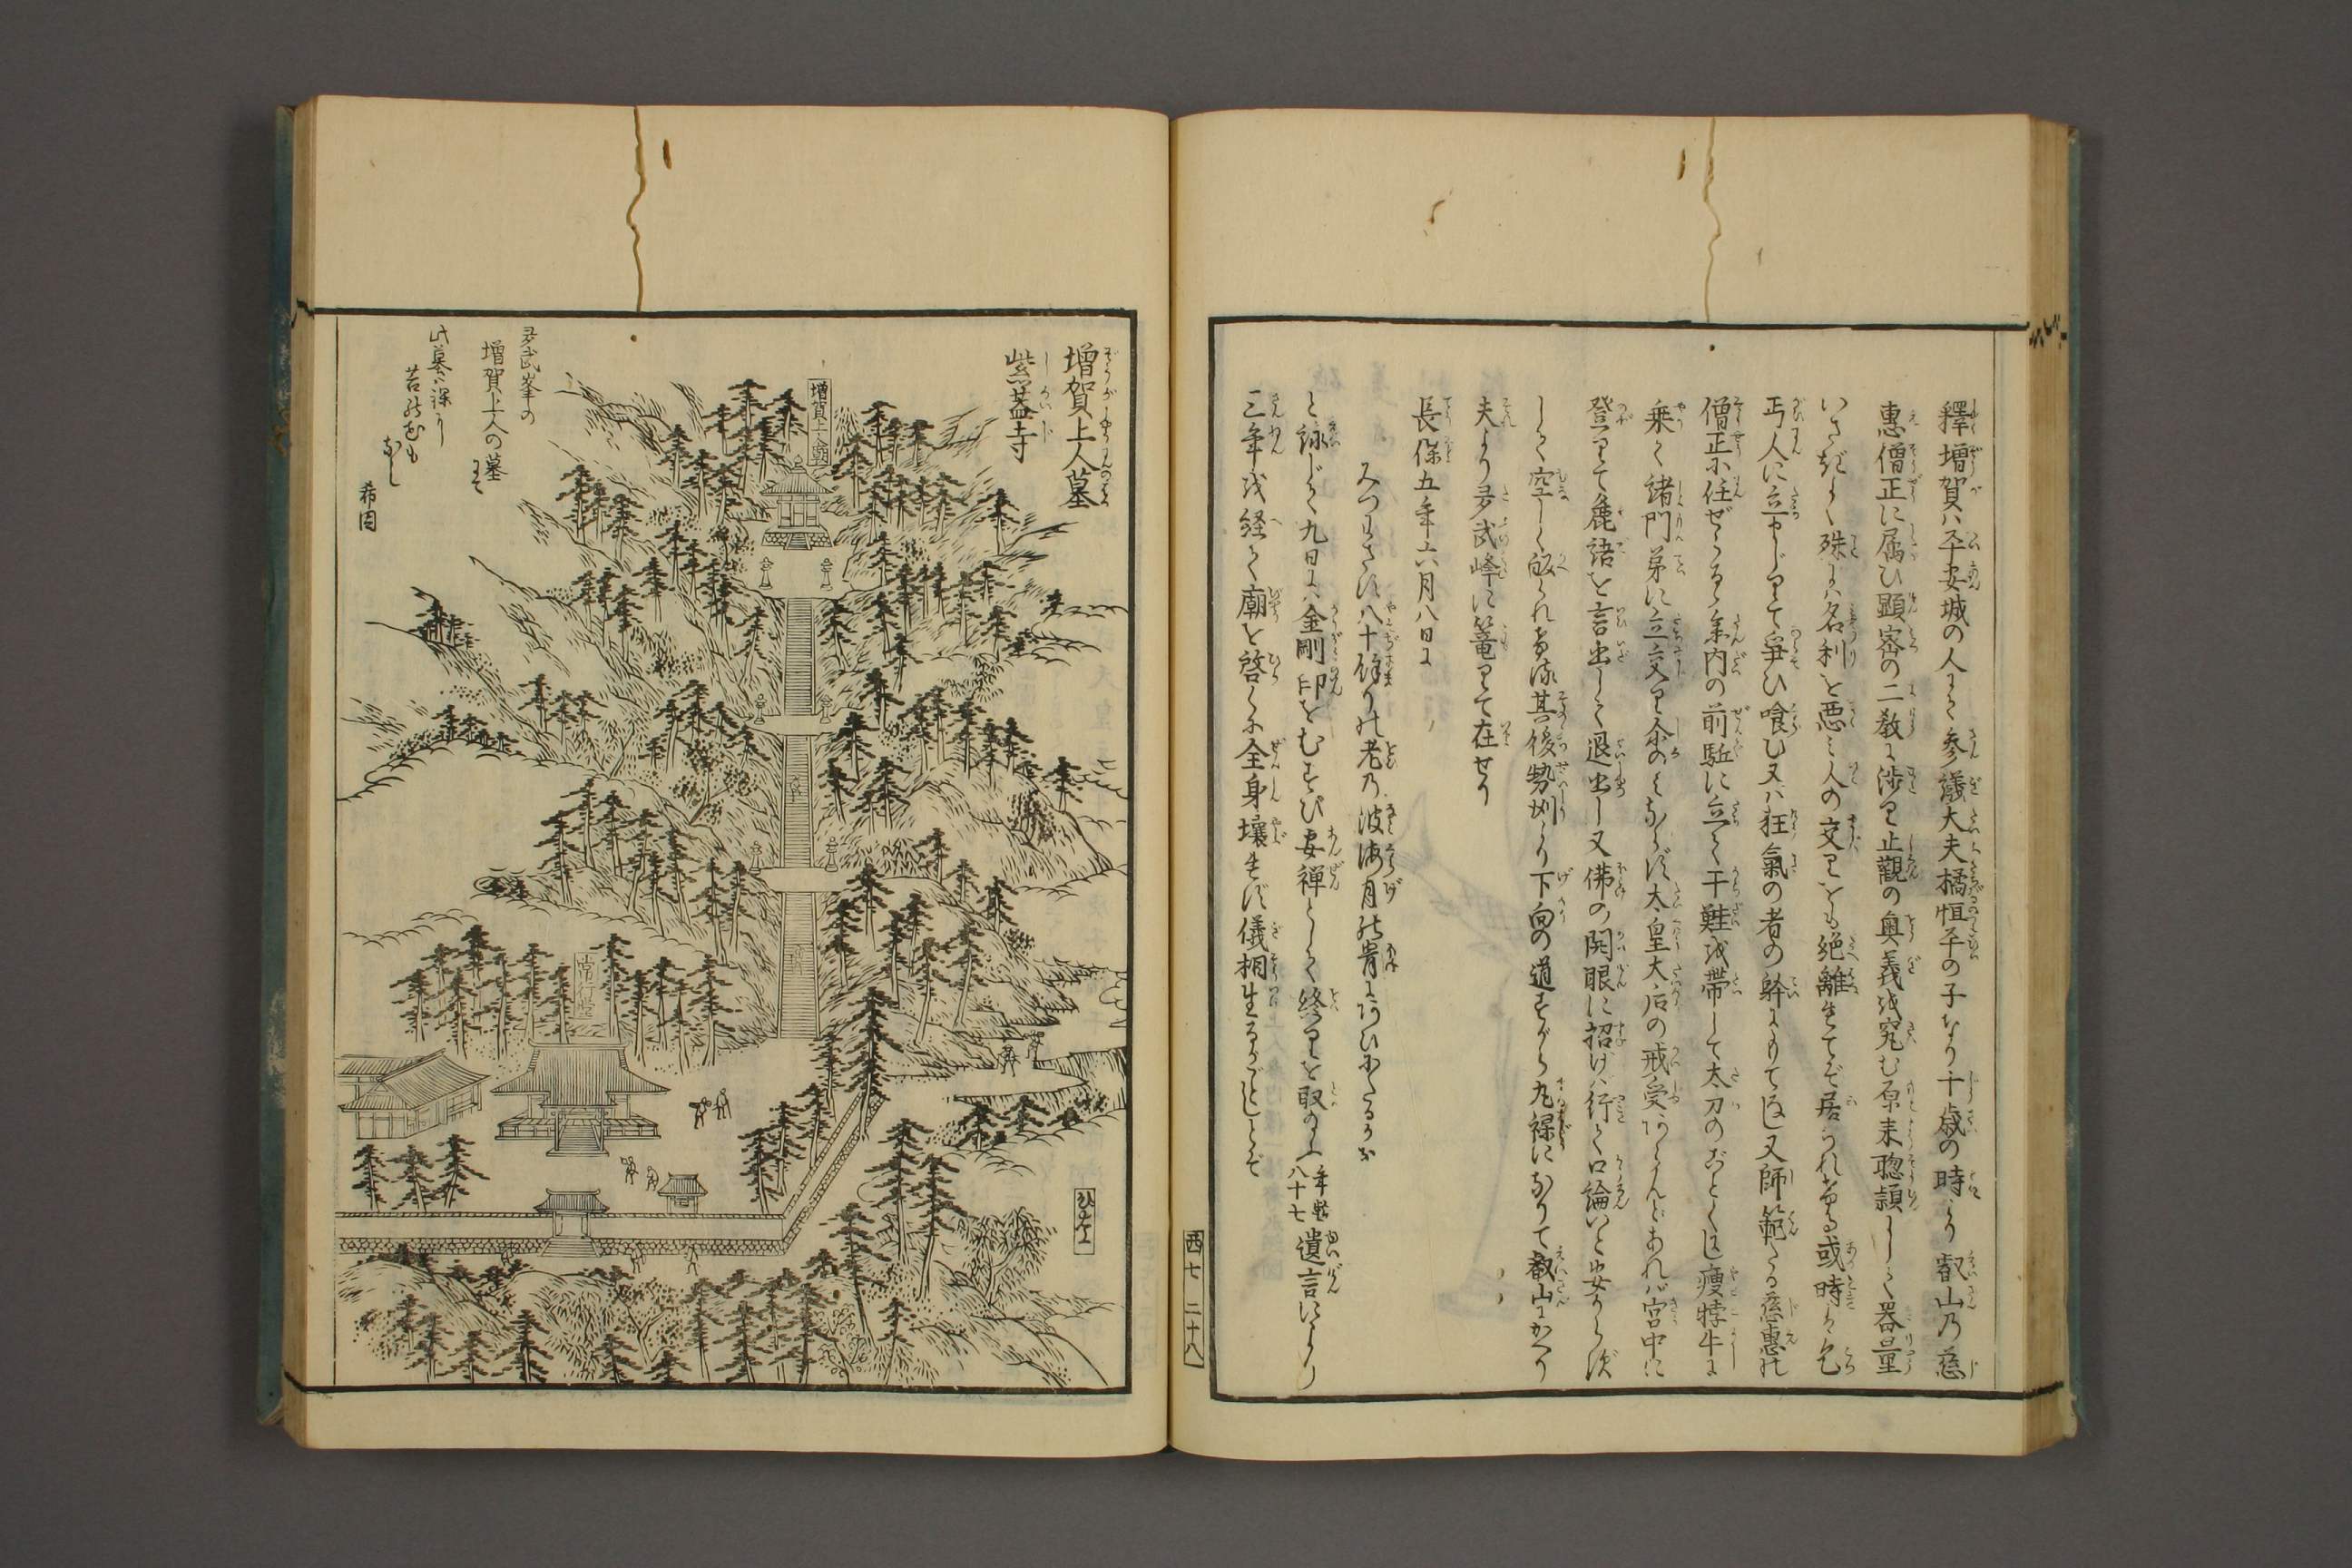 釋増賀ハ平安城の人にて参議大夫橘恒平の子なり十歳の時より叡山乃慈
惠僧正に属ひ顕密の二教に渉り止觀の奥義を究む原来聡頴にして器量
いさぎよく殊に名利を悪み人の交りをも絶離れてぞ居られける或時は乞
丐人に立まじりて爭ひ喰ひ又ハ狂氣の者の幹にもてなし又師範たる慈惠の
僧正に任ぜらるゝ参内の前駈に立て干鮭を帯して太刀のごとくし痩牸牛に
乗て諸門弟に立交り余のみならず太皇太后の戒受ならんとあれば宮中に
登りて麁語を言出して退出し又佛の開眼に招けば行て口論いと安からず
して空しく皈られける其後勢州より下向の道すがら丸裸になりて叡山にかへり
夫より多武峰に篭りて在せり
長保五年六月八日に
みつわさす八十餘りの老乃波海月の骨にあひにけるかな
と詠じて九日には金剛印をむすび安禅として終りを取給ふ年齢八十七遺言により
三年を経て廟を啓くに全身壊せず儀相生るがごとしとぞ
西七 二十八
増賀上人墓
紫蓋寺
増賀上人廟
多武峯の
増賀上人の墓
にて
此墓は裸に
苔の花も
なし
希因
常行堂